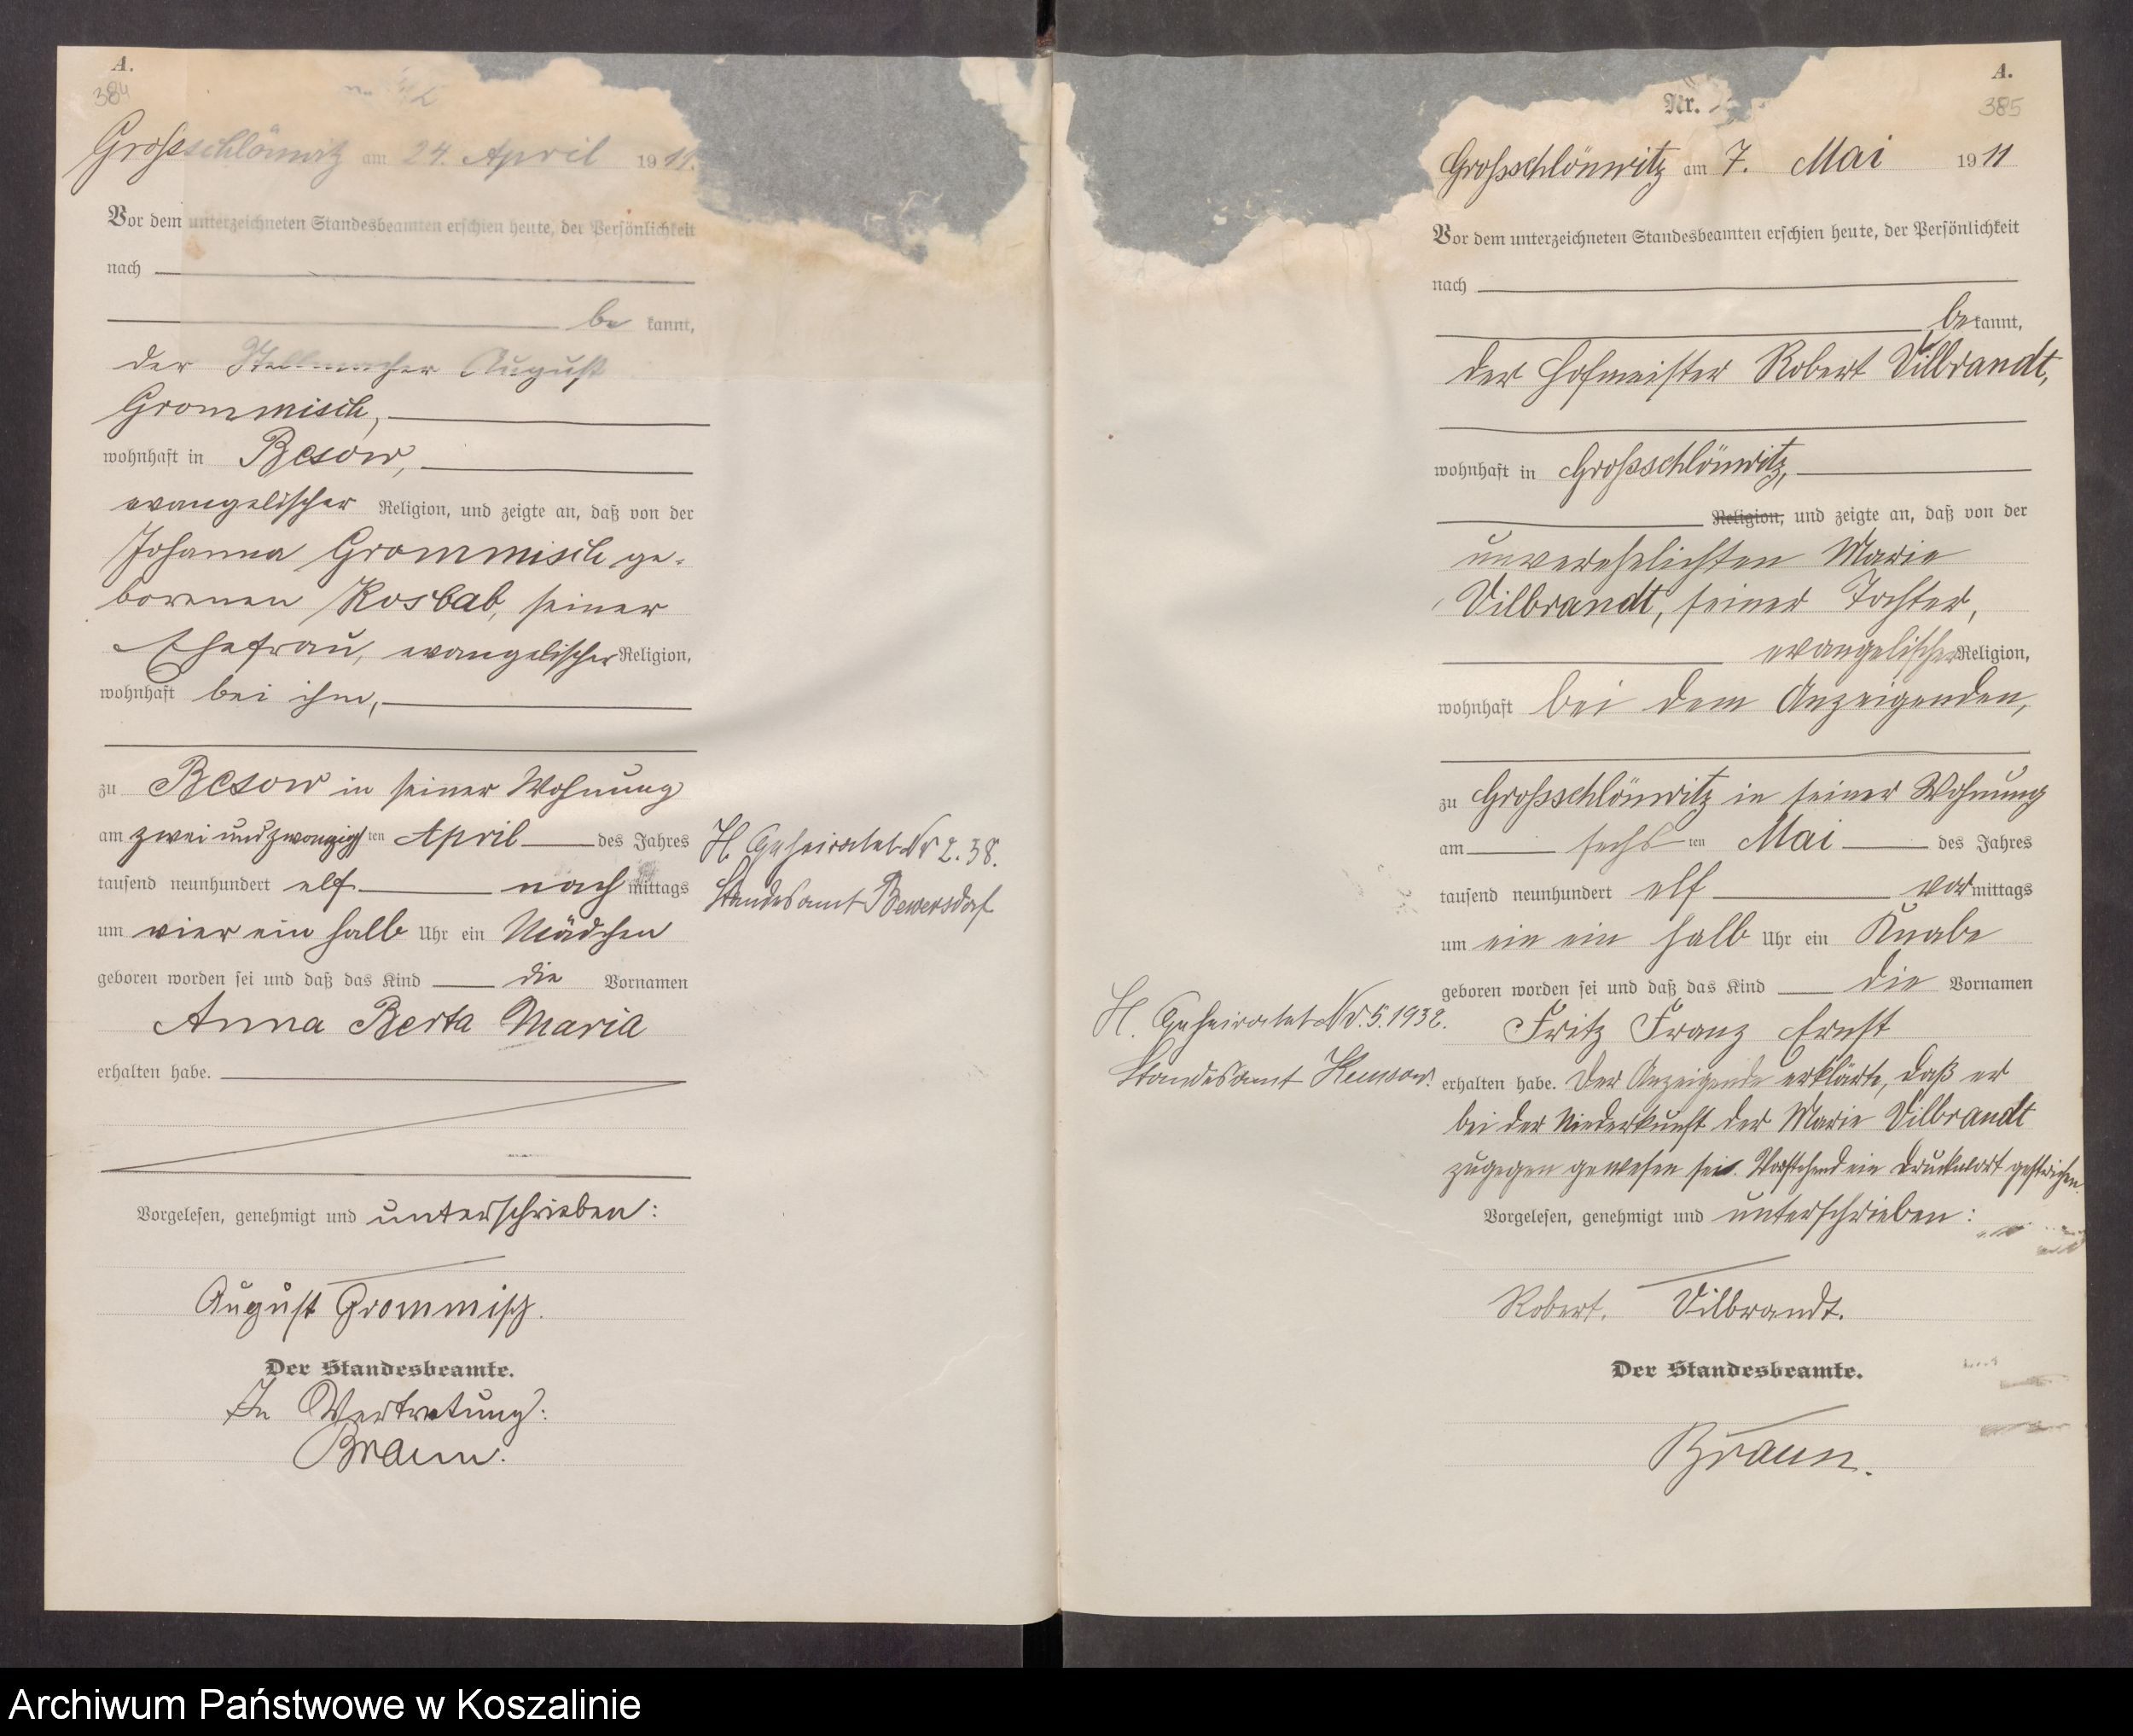 A.
384
Grossschlönwitz am 24. April 1911.
Vor dem unterzeichneten Standesbeamten erschien heute, der Persönlichkeit
nach
be kannt,
der Stellmacher August
Grommisch,
wohnhaft in Besow,
evangelischer Religion, und zeigte an, daß von der
Johanna Grommisch ge-
borenen Rosbab, seiner
Ehefrau, evangelischer Religion,
wohnhaft bei ihm,
zu Besow in seiner Wohnung
am zwei und zwanzigsten April des Jahres
tausend neunhundert elf nach mittags
um vier ein halb Uhr ein Mädchen
geboren worden sei und daß das Kind die Vornamen
Anna Berta Maria
erhalten habe.
Vorgelesen, genehmigt und unterschrieben:
August Grommisch.
Der Standesbeamte.
In Vertretung:
Braun.
H. Geheiratet Nr 2. 38.
Standesamt Bewersdorf
A.
Nr.
385
Grossschlönwitz am 7. Mai 1911
Vor dem unterzeichneten Standesbeamten erschien heute, der Persönlichkeit
nach
be kannt,
der Hofmeister Robert Vilbrandt,
wohnhaft in Grossschlönwitz,
Religion, und zeigte an, daß von der
unverehelichten Marie
Vilbrandt, seiner Tochter,
evangelischer Religion,
wohnhaft bei dem Anzeigenden,
zu Grossschlönwitz in seiner Wohnung
am sechs ten Mai des Jahres
tausend neunhundert elf vor mittags
um ein ein halb Uhr ein Knabe
geboren worden sei und daß das Kind die Vornamen
Fritz Franz Ernst
erhalten habe. Der Anzeigende erklärte, daß er
bei der Niederkunft der Marie Vilbrandt
zugegen gewesen sei. Vorstehend ein Druckwort gestrichen.
Vorgelesen, genehmigt und unterschrieben:
Robert. Vilbrandt.
Der Standesbeamte.
Braun.
H. Geheiratet Nr. 5. 1932.
Standesamt
Archiwum Państwowe w Koszalinie